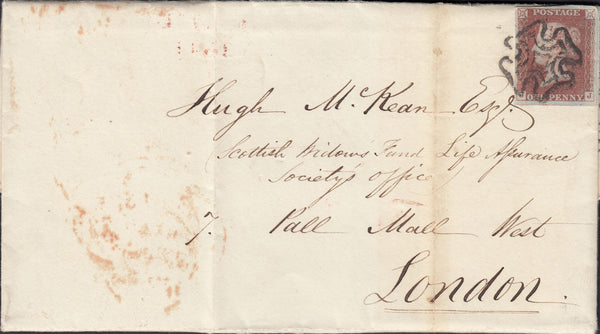 POSTAGE
ONE PENNY
J
Hugh McKean Esqr.
(Scottish Widows Fund Life Assurance
Society's office
7. Pall Mall West
London.